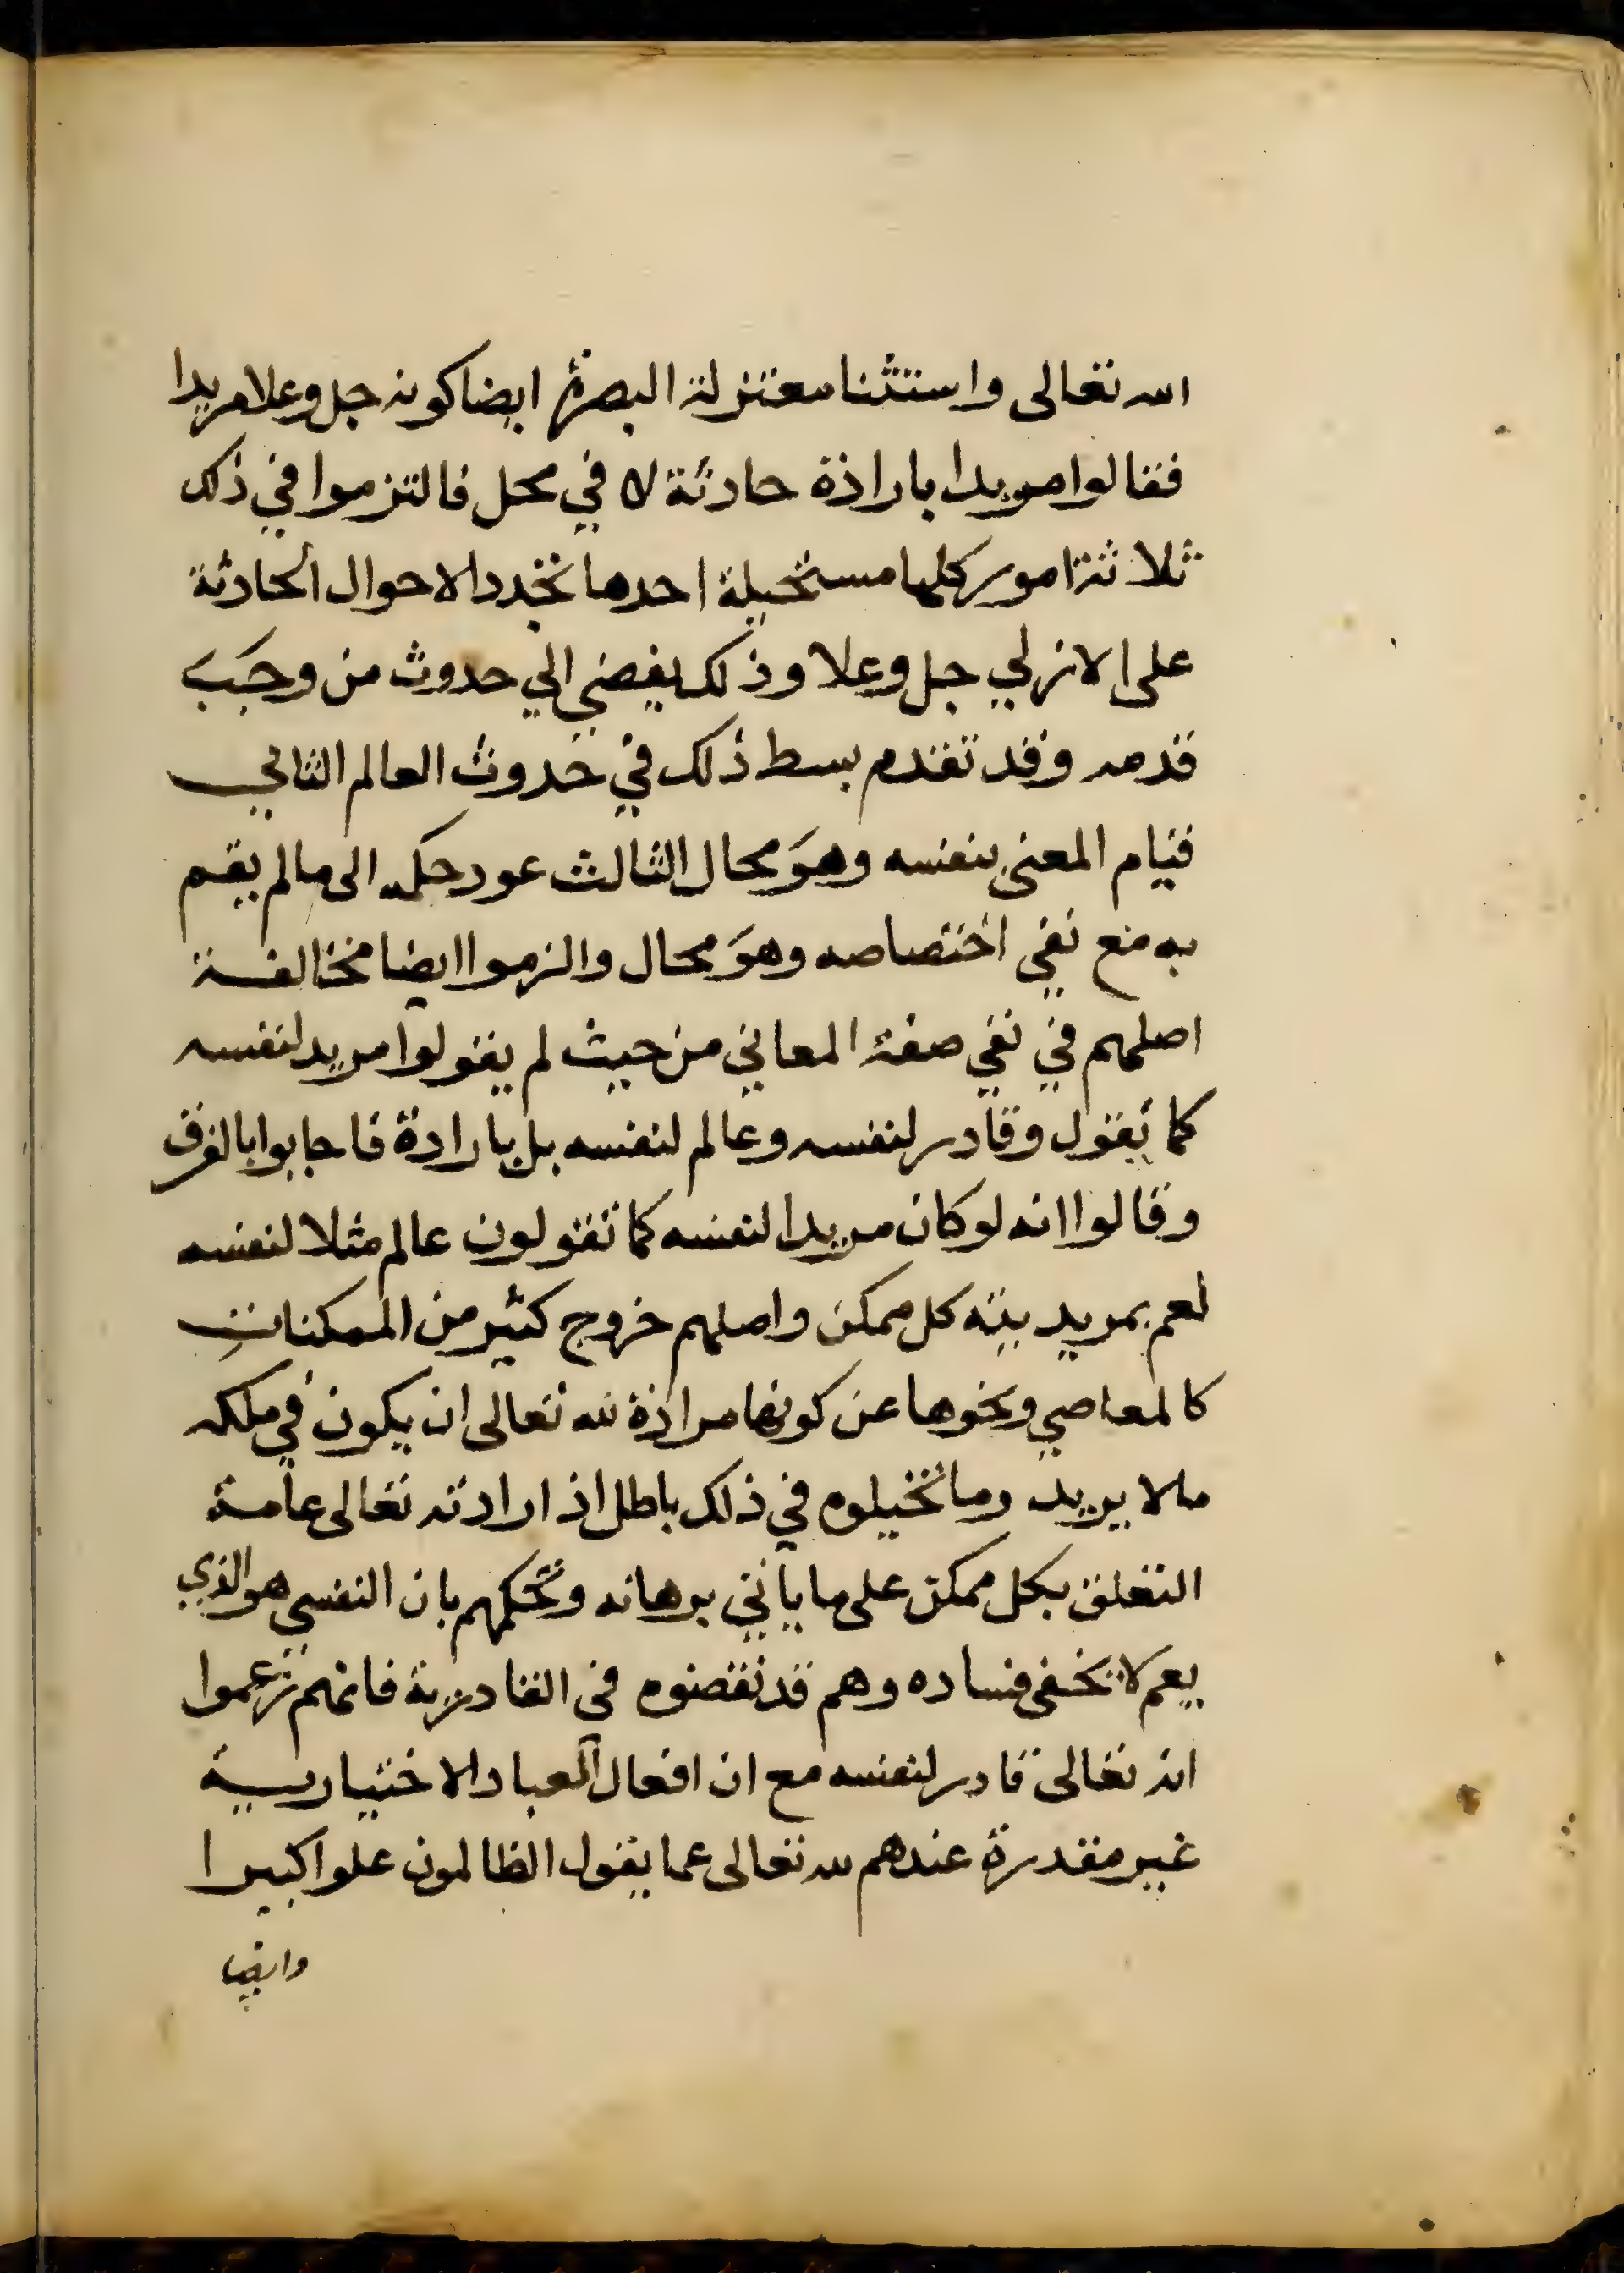 الله تعالى واستثنا معتزلة البصرة ايضا كونه جل وعلا مريدا
فقالوا مريدا بارادة حادثة لا في محل فالتزموا في ذلك
ثلاثة امور كلها مستحيلة احدها تجدد الاحوال الحادثة
على الازلي جل وعلا وذلك يفضي الي حدوث من وجب
قدمه وقد تقدم بسط ذلك في حدوث العالم الثاني
قيام المعنى بنفسه وهو محال الثالث عود حكمه الى ما لم يقم
به مع نفي اختصاصه وهو محال والزموا ايضا مخالفة
اصلهم في نفي صفة المعاني من حيث لم يقولوا مريد لنفسه
كما يقول وقادر لنفسه وعالم لنفسه بل بارادة فاجابوا بالفرق
وقالوا انه لو كان مريدا لنفسه كما تقولون عالم مثلا لنفسه
لعم بمريديته كل ممكن واصلهم خروج كثير من الممكنات
كالمعاصي ونحوها عن كونها مرادة لله تعالى ان يكون في ملكه
ما لا يريد وما تخيلوه في ذلك باطل اذ ارادته تعالى عامة
التعلق بكل ممكن على ما ياتي برهانه وتحكمهم بان النفسي هو الذي
يعم لا يخفى فساده وهم قد نقضوه في القادرية فانهم زعموا
انه تعالى قادر لنفسه مع ان افعال العباد الاختيارية
غير مقدرة عندهم لله تعالى عما يقول الظالمون علوا كبيرا
وايضا